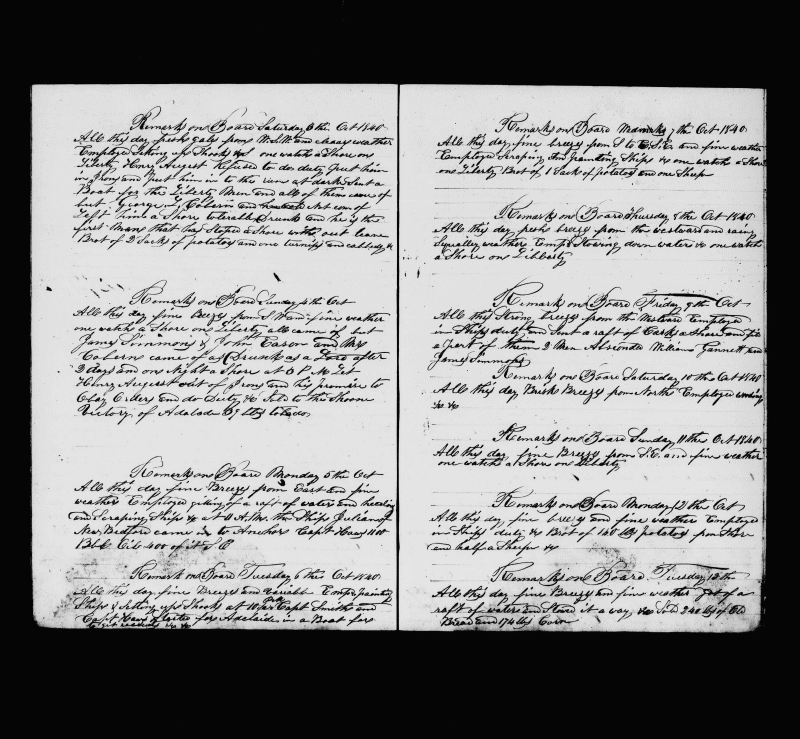 Remarks on Board Saturday 3th Oct 1840
All this day fresh gales from W.S.W. and weather
Employed Setting up Shooks &c one watch a Shore on
Liberty Henry August refused to do duty Put him
in Irons and Put him in to the run at dark Sent a
Boat for the Liberty Men and all of them came of
but George G Coburn and Not com of
Left him a Shore tolerable Drunk and he is the
first Man that has Stayed a Shore with out leave
Brot of 2 Sack of potatoes and one turnips and cabbedg &c
Remarks on Board Sunday 4th Oct
All this day fine Breeze from S Ward fine weather
one watch a Shore on Liberty all came of but
James Simmons & John Eason and Mrs
Coberns came of as Drunk as a Lord after
2 days and one Night a Shore at 6 P.M. Let
Henry August out of Irons and his promise to
Obay Orders and do Duty &c Sold to the Skoone
Victory of Adalade 37 lbs tobaco
Remarks on Board Monday 5th Oct
All this day fine Breeze from East and fine
weather Employed giting of a raft of water and
and Scraping Ship &c at 11 A.M. the Ship Julian of
New Bedford came in to Anchor Capt Haws 1100
Bbl Oil 400 of it S O
Remarks on Board Tuesday 6th Oct 1840
All this day fine Breeze and variable Empd painting
Ship & Setting up Shooks at 10 Capt Smith and
Capt Haws Started for Adelaide in a Boat for
&c &c
Remarks on Board 7th Oct 1840
All this day fine breeze from S to E.S.E. and fine weather
Employed Scraping and painting Ship &c one watch a Shore
one Liberty Brot of 1 Sack of potatoes and one Sheep
Remarks on Board Thursday 8th Oct 1840
All this day fresh breeze from the westward and rainy
Squally weather Empd Stowing down water &c one watch
a Shore on Libberty
Remarks on Board Friday 9th Oct
All this Strong breeze from the Westward Employed
in Ships duty and Sent a raft of Casks a Shore and
a part of them 2 Men Absconded William Gannett and
James Simmons
Remarks on Board Saturday 10th Oct 1840
All this day Brisk Breeze from North Employed
&c &c
Remarks on Board Sunday 11th Oct 1840
All this day fine Breeze from S.E. and fine weather
one watch a Shore on Liberty
Remarks on Board Monday 12th Oct
All this day fine breeze and fine weather Employed
in Ships duty &c Brot of 140 lbs potatoes from Shore
and half a Sheepe &c
Remarks on Board Tuesday 13th
All this day fine Breeze and fine weather got of a
raft of water and Stowed it a way &c Sold 240 lbs of Old
Bread and 174 lbs Corn